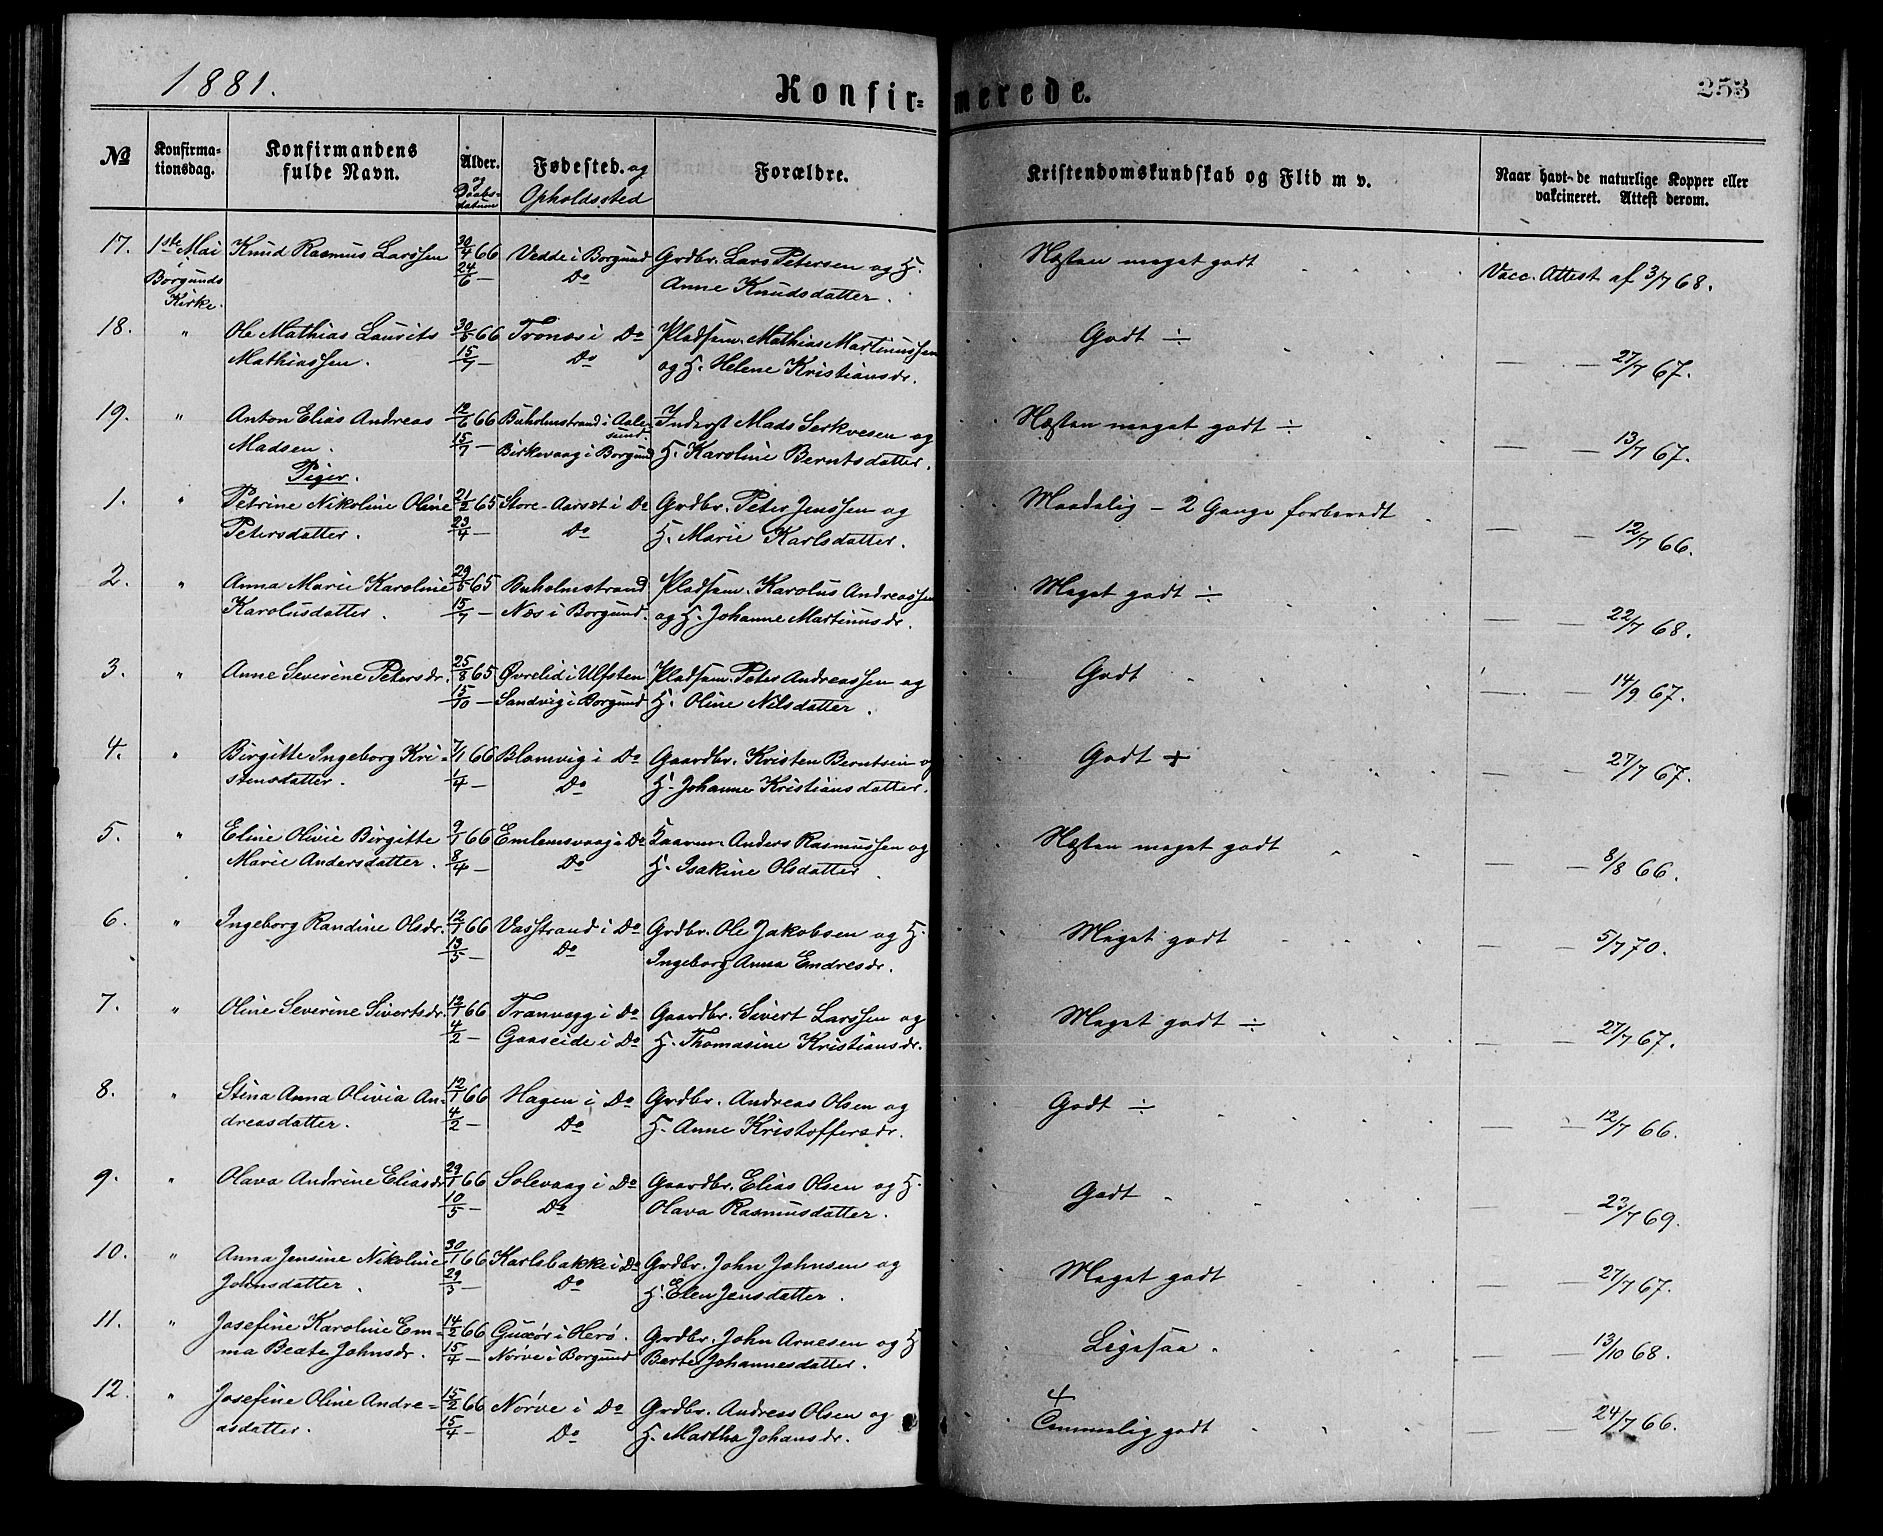 1881.
Konfir=
merede.
253
No
Konfirma-
tionsdag.
Konfirmandens
fulde Navn.
Alder.
og
Daabs-
datum
Fødested. og
Opholdssted
Forældre.
Kristendomskundskab og Flid m v.
Naar havt de naturlige Kopper eller
vakcineret. Attest derom.
17. 1ste Mai Knud Rasmus Larssen 30/4 66 Vedde i Borgund Grdbr. Lars Petersen og H. Næsten meget godt Vacc. Attest af 3/7 68.
Borgunds 24/6 — Do Anne Knudsdatter.
Kirke.
18. " Ole Mathias Laurits 30/5 66 Tronæs i Do Pladsm. Mathias Martinussen Godt ÷
Mathiassen. 15/7 — Do og H. Helene Kristiansdr. — — 27/7 67.
19. " Anton Elias Andreas 12/6 66 Buholmstrand i Aale- Inderst Mads Serkvesen og Næsten meget godt ÷
sund.
Madsen. 15/7 — Birkevaag i Borgund H. Karoline Berntsdatter. — — 13/7 67.
Piger.
1. " Petrine Nikoline Oline 21/2 65 Store-Aarset i Do Grdbr. Peter Jenssen og Maadelig – 2 Gange forberedt
Petersdatter. 23/4 — Do H. Marie Karlsdatter. — — 12/7 66.
2. " Anna Marie Karoline 29/5 65 Buholmstrand Pladsm. Karolus Andreassen Meget godt ÷
Karolusdatter. 15/7 — Næs i Borgund. og H. Johanne Martinusdr. — — 22/7 68.
3. " Anne Severine Petersdr. 25/8 65 Øvrelid i Ulfsten Pladsm. Peter Andreassen og Godt
15/10 — Sandvig i Borgund H. Oline Nilsdatter. — — 14/9 67.
4. " Birgitte Ingeborg Kri- 7/1 66 Blomvig i Do Gaardbr. Kristen Berntsen og Godt +
stensdatter. 1/4 — Do H. Johanne Kristiansdatter. — — 27/7 67.
5. " Eline Olivie Birgitte 9/1 66 Emlemsvaag i Do Kaarm. Anders Rasmussen og Næsten meget godt
Marie Andersdatter. 8/4 — Do H. Isakine Olsdatter. — — 8/8 66.
6. " Ingeborg Randine Olsdr. 12/1 66 Vasstrand i Do Grdbr. Ole Jakobsen og H. Meget godt
13/5 — Do Ingeborg Anna Endresdr. — — 5/7 70.
7. " Oline Severine Sivertsdr. 12/1 66 Tranvaag i Do Gaardbr. Sivert Larssen og Meget godt ÷
4/2 — Gaaseide i Do H. Thomasine Kristiansdr. — — 27/7 67.
8. " Stina Anna Olivia An- 12/1 66 Hagen i Do Grdbr. Andreas Olsen og Godt ÷
dreasdatter. 4/2 — Do H. Anne Kristoffersdr. — — 12/7 66.
9. " Olava Andrine Eliasdr. 29/1 66 Solevaag i Do Gaardbr. Elias Olsen og H. Godt
10/5 — Do Olava Rasmusdatter. — — 23/7 69.
10. " Anna Jensine Nikoline 30/1 66 Karlsbakke i Do Grdbr. John Johnsen og Meget godt
Johnsdatter. 29/3 — Do H. Elen Jensdatter. — — 27/7 67.
11. " Josefine Karoline Em- 14/2 66 Gurør i Herø. Grdbr. John Arnesen og H Ligesaa.
ma Beate Johnsdr. 15/4 — Nørve i Borgund Berte Johannesdatter. — — 13/10 68.
12. " Josefine Oline Andre- 15/2 66 Nørve i Do Grdbr. Andreas Olsen og +
Temmelig godt
asdatter. 15/4 — Do H. Martha Johansdr. — — 24/7 66.